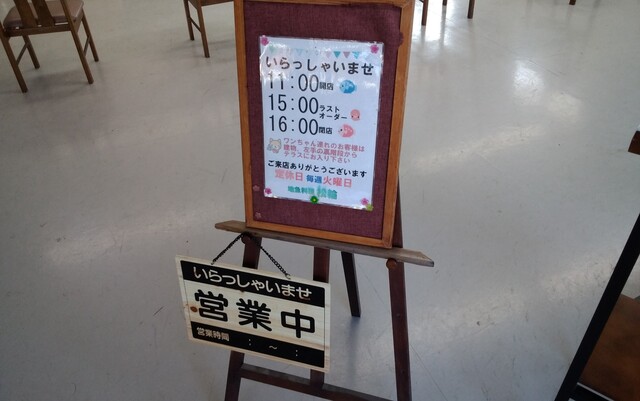 いらっしゃいませ
11:00開店
15:00ラストオーダー
16:00閉店
ワンちゃん連れのお客様は
建物、左手の裏階段から
テラスにお入り下さい
ご来店ありがとうございます
定休日 毎週火曜日
地魚料理
いらっしゃいませ
営業中
営業時間 : ~ :